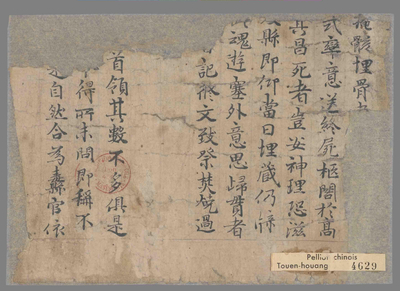 掩骸埋骨
式牽意送終屍柩閣於高
昌死者豈安神理恐滋
縣即仰當日埋藏仍牒
魂遊塞外意思歸貫者
記 文致祭焚 過
首領其數不多俱是
得所未問即稱不
自然合為縣官依
Pelliot chinois
Touen-houang 4629